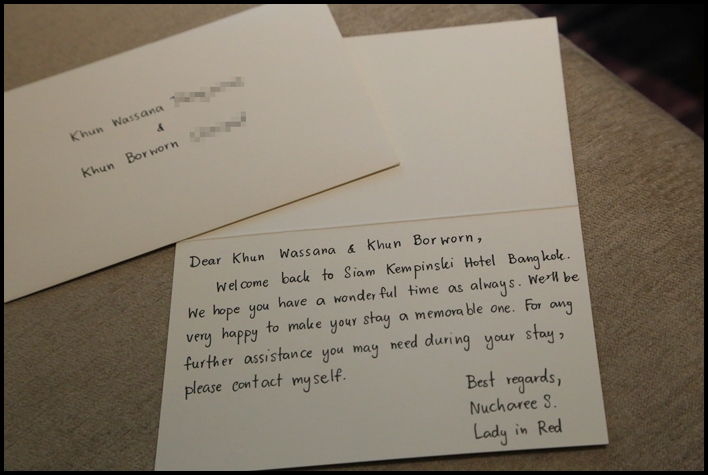 Khun Wassana
&
Khun Borworn
Dear Khun Wassana & Khun Borworn,
Welcome back to Siam Kempinski Hotel Bangkok.
We hope you have a wonderful time as always. We'll be
very happy to make your stay a memorable one. For any
further assistance you may need during your stay,
please contact myself.
Best regards,
Nucharee S.
Lady in Red